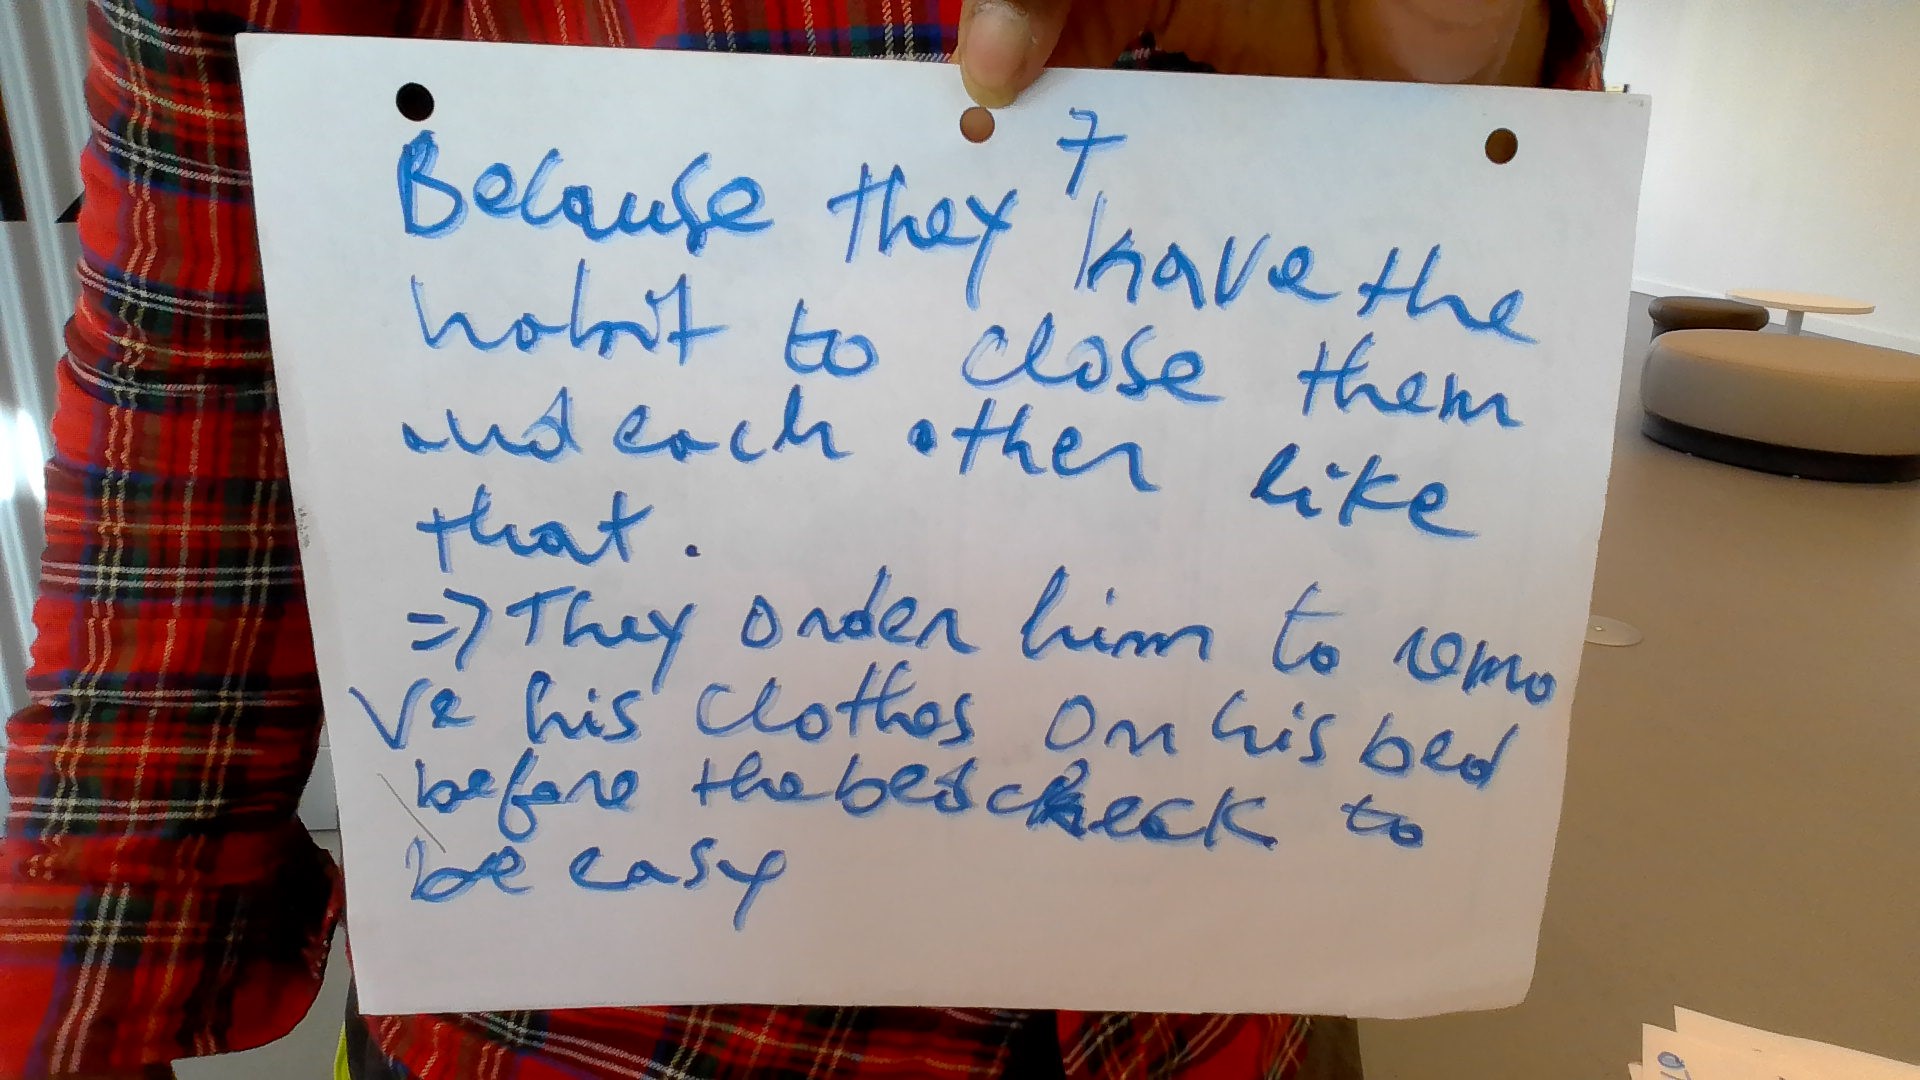 7
Because they have the
habit to close them
and each other like
that.
=> They order him to remo
ve his clothes on his bed
before the bed check to
be easy